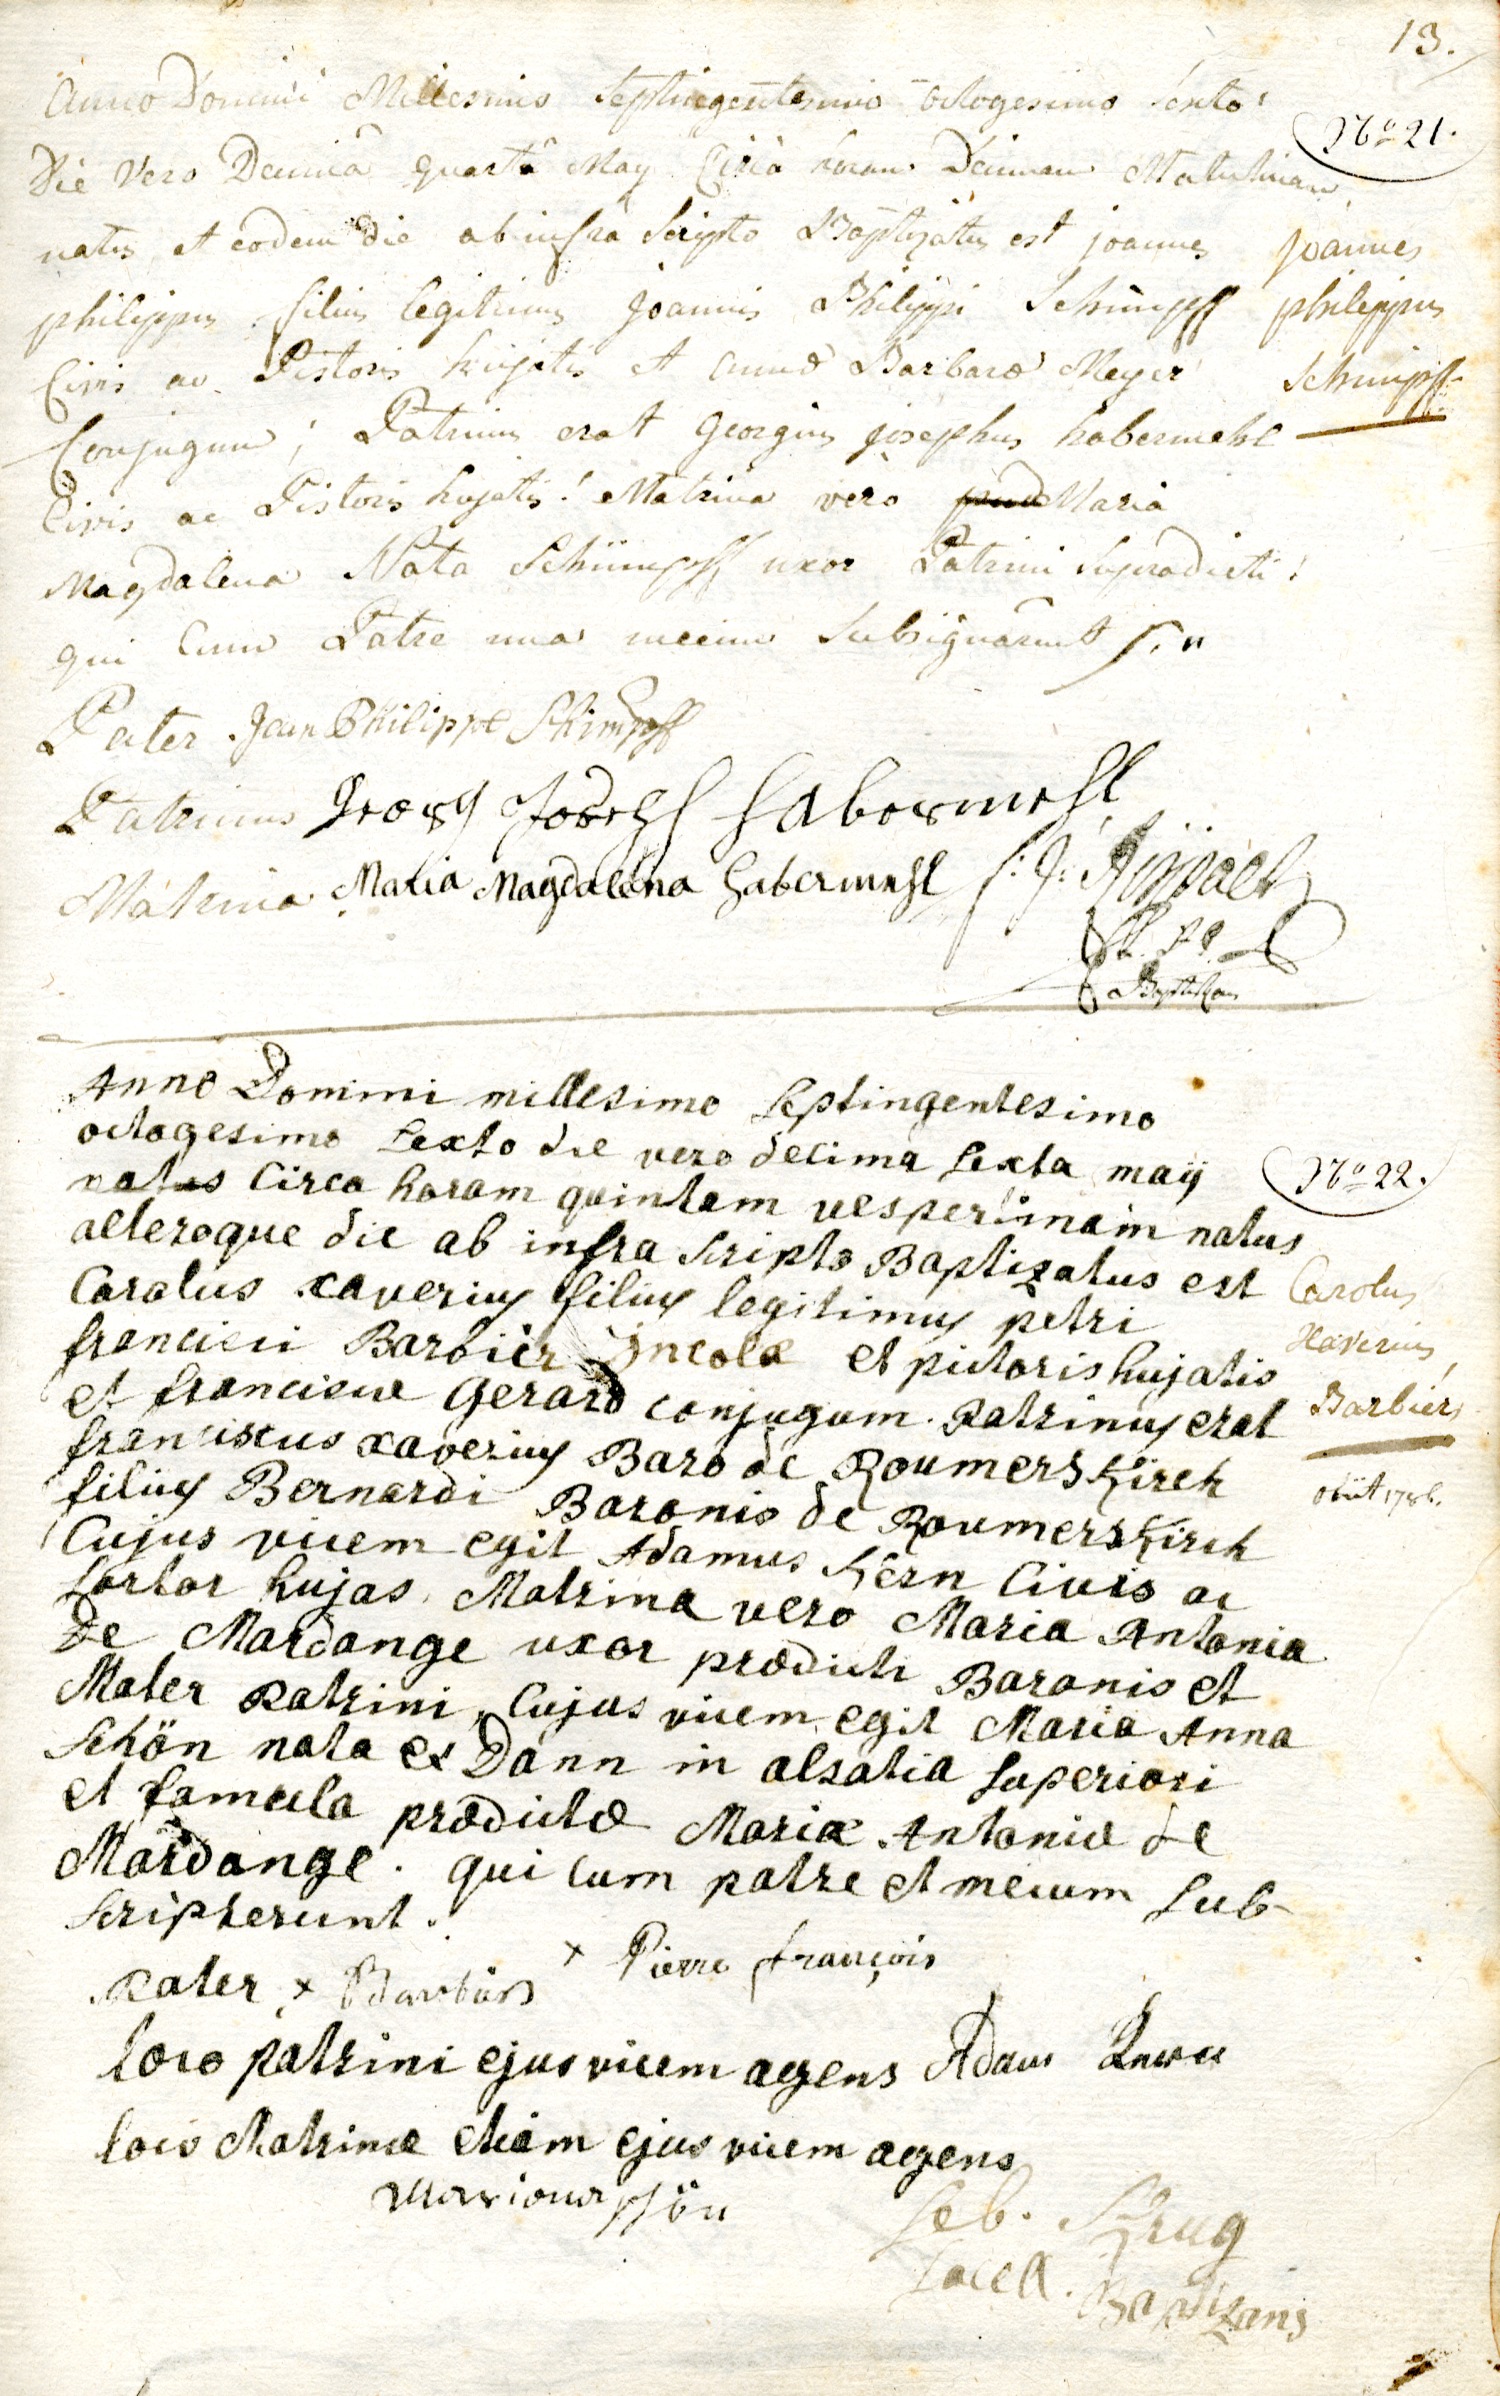 13.
Anno Domini Millesimo Septingentesimo octogesimo sexto
No 21.
Die Vero Decimâ quartâ May Circa horam Decimam Matutinam
natus et eodem die ab infra scripto Baptizatus est joannes
philippus filius legitimus joannis Philippi Schimpff
Civis ac Pistoris hujatis et Annæ Barbaræ Meyer
Conjugum; Patrinus erat georgius josephus habermehl
Civis ac Pistoris hujatis! Matrina vero Maria
Magdalena Nata Schimpff uxor Patrini supradicti!
qui Cum Patre una mecum Subsignarunt
joannes
philippus
Schimpff
Pater Jean Philippe Schimpff
Patrinus Georg Joseph Habermehl
Matrina Maria Magdalena Habermehl
Baptizans
Anno Domini millesimo septingentesimo
octogesimo sexto die vero decima sexta maÿ
No 22.
natus Circa horam quintam vespertinam natus
alteroque die ab infra scripto Baptizatus est
Carolus xaverius filius legitimus petri
francisci Barbier Incolæ et pictoris hujatis
et franciscæ Gerard conjugum. Patrinus erat
franciscus xaverius Baro de Roumerskirch
filius Bernardi Baronis de Roumerskirch
Cujus vicem egit Adamus Kern Civis ac
sartor hujas. Matrina vero Maria Antonia
De Mardange uxor prædicti Baronis et
Mater Patrini, Cujus vicem egit Maria Anna
Schön nata ex Dann in alsatia superiori
et famula prædictæ Mariæ Antoniæ de
Mardange. qui cum patre et mecum sub-
scripserunt.
Carolus
Xaverius
Barbier
obiit 1786.
Pater x Barbier x Pierre françois
loco patrini ejus vicem agens Adam Kern
loco Matrinæ etiam ejus vicem agens
Mariana schön
Seb. Krug
Sacell. Baptizans